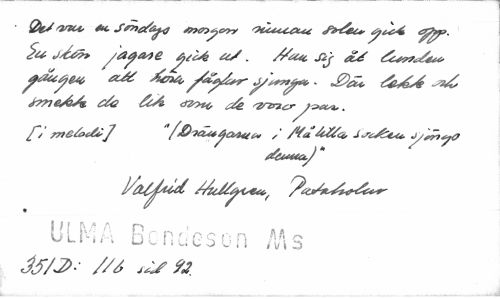 Det var en söndags morgon innan solen gick opp.
En skön jagare gick ut. Han sig åt lunden
gången att höra fåglar sjunga. Där lekte och
smekte de lik som de voro par.
[i melodi] "(Drängarna i Målilla socken sjöngo
denna)"
Valfrid Hullgren, Pataholm
ULMA Bondeson Ms
351D: 116 sid 92.